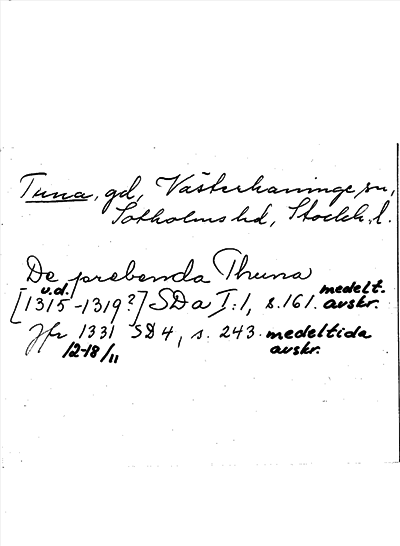 Tuna, gd, Västerhaninge sn,
Sotholms hd, Stockh. l.
De prebenda Thuna
u.d. medelt.
[1315-1319?] SDa I:1, s. 161. avskr.
Jfr 1331 SD 4, s. 243. medeltida
12-18/11 avskr.